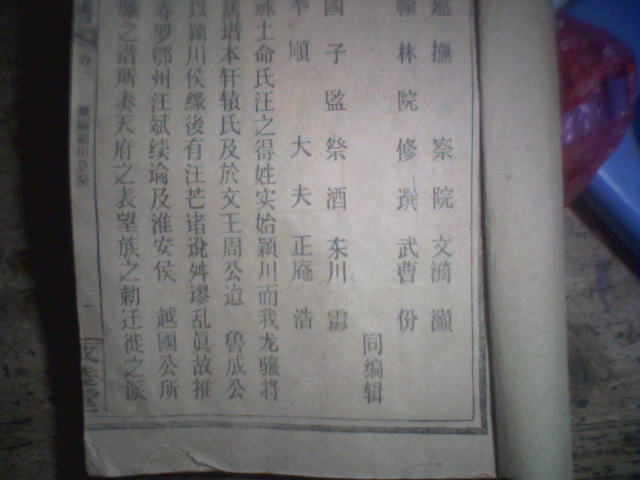 巡撫 察院 文滴灏
翰林院修撰 武曹份
同编辑
國子監祭酒 东川霈
奉順 大夫 正庵浩
派土命氏汪之得姓实始颖川而我龙骧将
谱本轩辕氏及於文王周公迨 魯成公
以颖川侯缘後有汪芒诸说舛谬乱真故推
寿罗鄂州汪斌续论及淮安侯 越國公所
骧之谱所表天府之表望族之勅迁徙之派
一